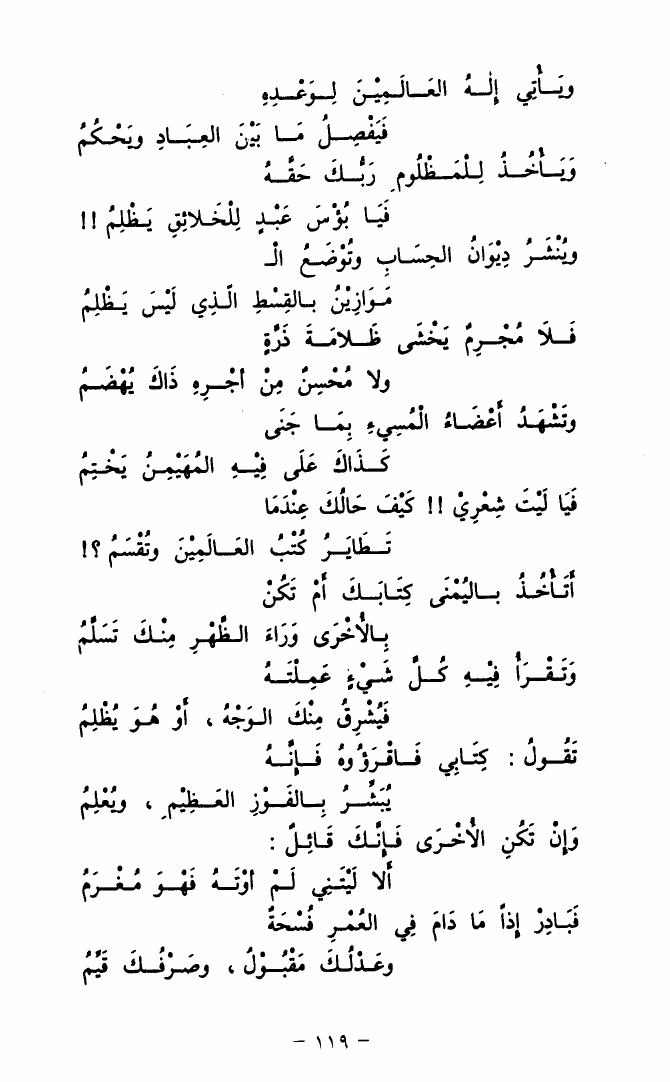 ويَأْتِي إِلٰهُ العَالَمِيْنَ لِوَعْدِهِ
فَيَفْصِلُ مَا بَيْنَ العِبَادِ ويَحْكُمُ
وَيَأْخُذُ لِلْمَظْلُومِ رَبُّكَ حَقَّهُ
فَيَا بُؤْسَ عَبْدٍ لِلْخَلائِقِ يَظْلِمُ !!
ويُنْشَرُ دِيْوَانُ الحِسَابِ وتُوْضَعُ الْـ
مَوَازِيْنُ بِالقِسْطِ الَّذِي لَيْسَ يَظْلِمُ
فَلَا مُجْرِمٌ يَخْشَى ظَلامَةَ ذَرَّةٍ
ولا مُحْسِنٌ مِنْ أجْرِهِ ذَاكَ يُهْضَمُ
وتَشْهَدُ أَعْضَاءُ الْمُسِيءِ بِمَا جَنَى
كَذَاكَ عَلَى فِيْهِ المُهَيْمِنُ يَخْتِمُ
فَيَا لَيْتَ شِعْرِيْ !! كَيْفَ حَالُكَ عِنْدَمَا
تَطَايَرُ كُتْبُ العَالَمِيْنَ وتُقْسَمُ ؟!
أَتَأْخُذُ بِاليُمْنَى كِتَابَكَ أَمْ تَكُنْ
بِالأُخْرَى وَرَاءَ الظَّهْرِ مِنْكَ تَسَلَّمُ
وَتَقْرَأُ فِيْهِ كُلَّ شَيْءٍ عَمِلْتَهُ
فَيُشْرِقُ مِنْكَ الوَجْهُ ، أَوْ هُوَ يُظْلِمُ
تَقُولُ : كِتَابِي فَاقْرَؤُوهُ فَإِنَّهُ
يُبَشِّرُ بِالفَوْزِ العَظِيْمِ ، ويُعْلِمُ
وَإِنْ تَكُنِ الأُخْرَى فَإِنَّكَ قَائِلٌ :
أَلا لَيْتَنِي لَمْ أُوْتَهُ فَهْوَ مُغْرَمُ
فَبَادِرْ إِذاً مَا دَامَ فِي العُمْرِ فُسْحَةٌ
وعَدْلُكَ مَقْبُوْلٌ ، وصَرْفُكَ قَيِّمُ
- ١١٩ -